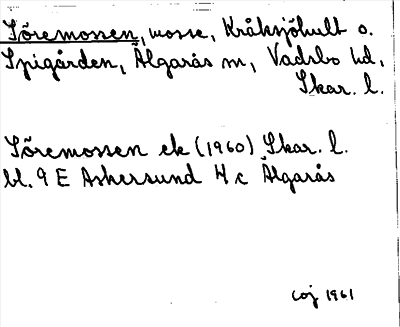 Söremossen, mosse, Kråksjöhult o.
Spigården, Älgarås sn, Vadsbo hd,
Skar. l.
Söremossen ek (1960) Skar. l.
bl. 9 E Askersund 4 c Älgarås
Coj 1961